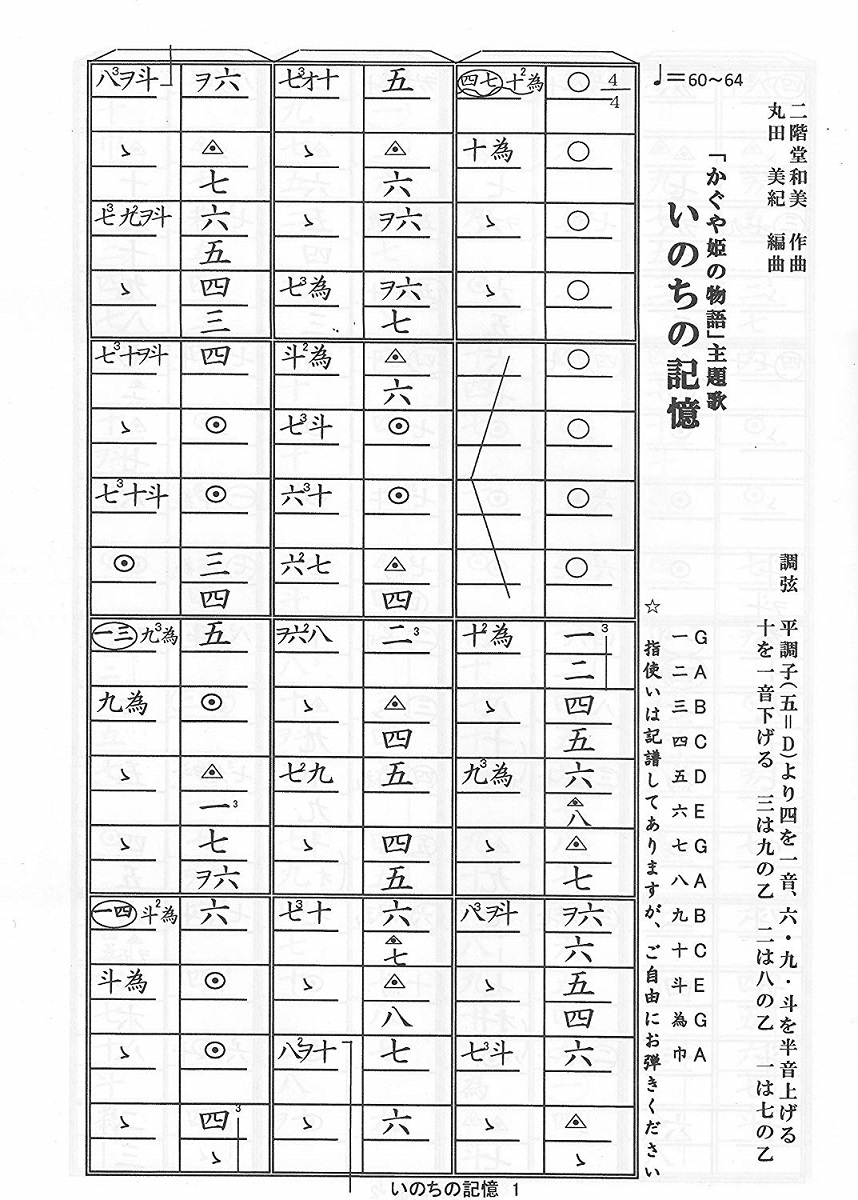 二階堂和美 作曲
丸田 美紀 編曲
「かぐや姫の物語」主題歌
いのちの記憶
♩=60〜64
調弦 平調子(五=D)より四を一音、六・九・斗を半音上げる
十を一音下げる 三は九の乙 二は八の乙 一は七の乙
G A B C D E G A B C E G A
一 二 三 四 五 六 七 八 九 十 斗 為 巾
☆ 指使いは記譜してありますが、ご自由にお弾きください
○ 4/4 ○ ○ ○ ○ ○ ○ ○ 一3 二 四 五 六 △ 八 △ 七 ヲ六 六 五 四 六 △ ゝ
四七 十2為 十為 ゝ ゝ 十2為 ゝ 九3為 ゝ 八3ヲ斗 ゝ 七3斗 ゝ
五 △ 六 ヲ六 ヲ六 七 △ 六 ⊙ ⊙ △ 四 二3 △ 四 五 四 五 六 △ 七 △ 八 七 六
七3オ十 ゝ ゝ 七3為 斗2為 七3斗 六3十 六2七 ヲ六2八 ゝ 七2九 ゝ 七3十 ゝ 八2ヲ十 ゝ
ヲ六 △ 七 六 五 四 三 四 ⊙ ⊙ 三 四 五 ⊙ △ 一3 七 ヲ六 六 ⊙ ⊙ 四3 ゝ
八3ヲ斗 ゝ 七3九ヲ斗 ゝ 七3十ヲ斗 ゝ 七3十斗 ⊙ 一三 九3為 九為 ゝ ゝ 一四 斗2為 斗為 ゝ ゝ
いのちの記憶 1